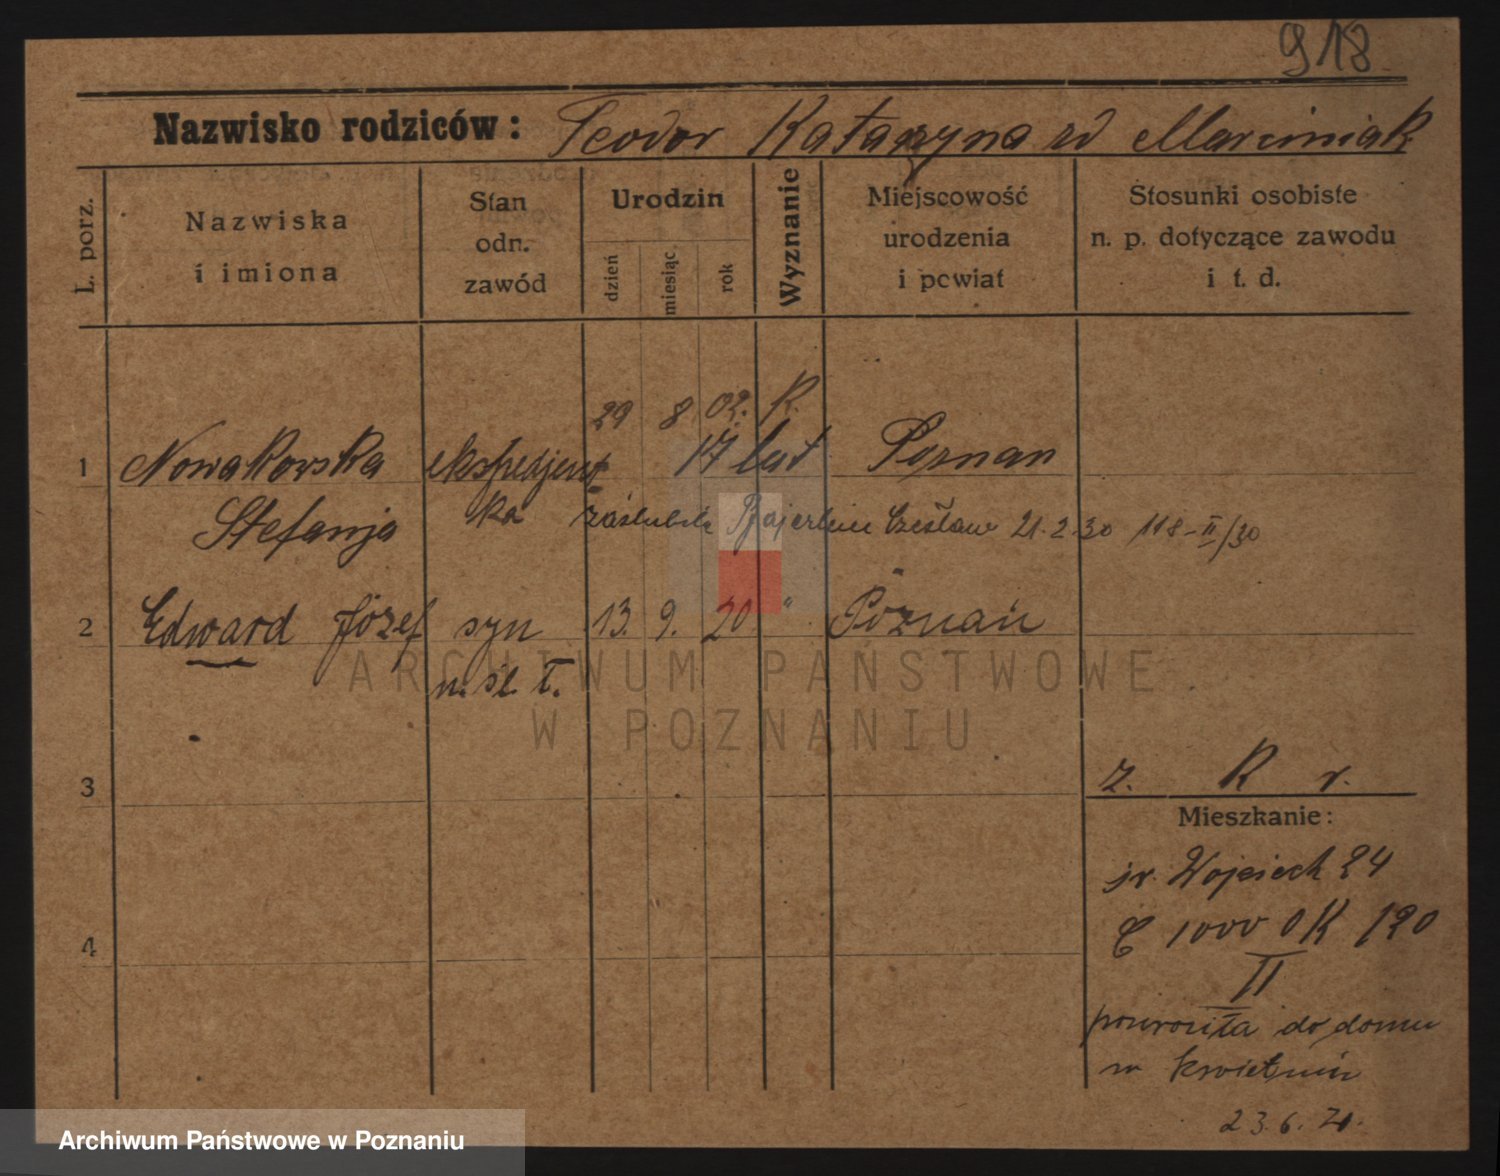 918
Nazwisko rodziców: Teodor Katarzyna zd Marciniak
L. porz.
Nazwiska
i imiona
Stan
odn.
zawód
Urodzin
dzień
miesiąc
rok
Wyznanie
Miejscowość
urodzenia
i powiat
Stosunki osobiste
n. p. dotyczące zawodu
i t. d.
29 8 02. K.
1 Nowakowska ekspedjent 17 lat Poznan
Stefanja ka zaślubiła Czesław 21.2.30 118-II/30
2 Edward Józef syn 13. 9. 20 " Poznań
n. śl. T.
ARCHIWUM PAŃSTWOWE
W POZNANIU
3
z. K r.
Mieszkanie:
4
św. Wojciech 24
1000 OK 120
II
powrociła do domu
w kwietniu
23.6.21.
Archiwum Państwowe w Poznaniu